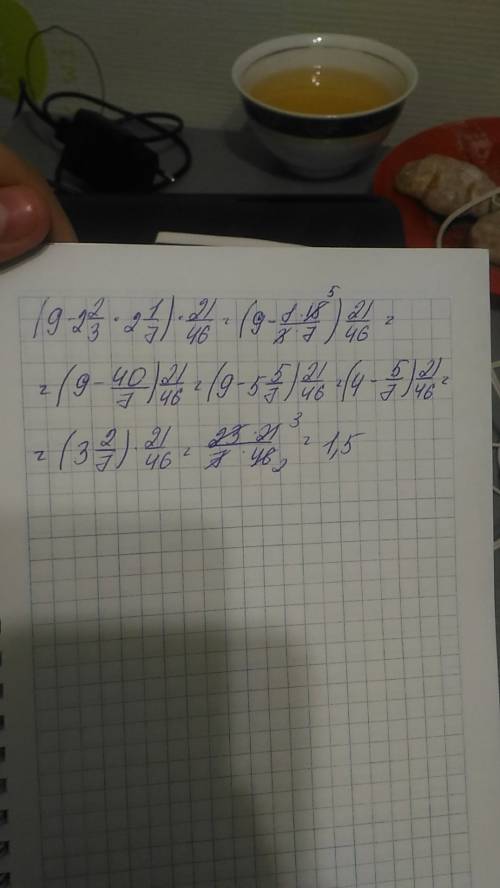 (9 - 2 2/3 · 2 1/7) · 21/46 = (9 - 8·15⁵/3·7) 21/46 =
= (9 - 40/7) 21/46 = (9 - 5 5/7) 21/46 = (4 - 5/7) 21/46 =
= (3 2/7) · 21/46 = 23·21³/7·46₂ = 1,5